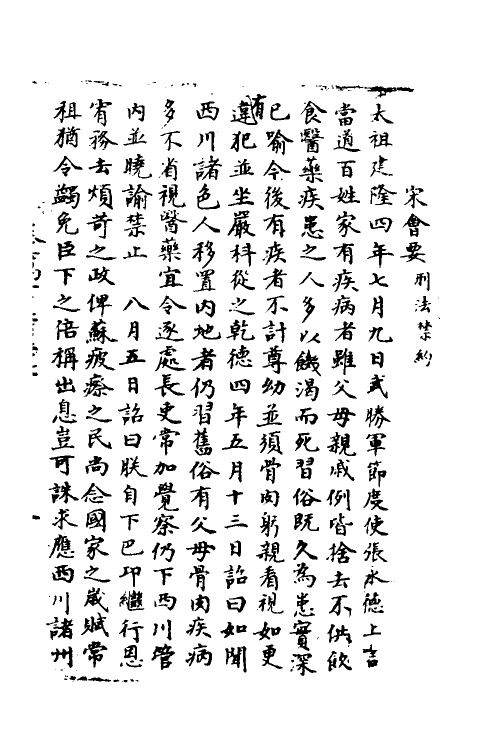 宋會要 刑法禁約
太祖建隆四年七月九日武勝軍節度使張永德上言
當道百姓家有疾病者雖父母親戚例皆捨去不供飲
食醫藥疾患之人多以饑渴而死習俗既久為患實深
已喻今後有疾者不計尊幼並須骨肉躬親看視如更有
違犯並坐嚴科從之乾德四年五月十三日詔曰如聞
西川諸色人移置內地者仍習舊俗有父母骨肉疾病
多不省視醫藥宜令逐處長吏常加覺察仍下西川管
內並曉諭禁止 八月五日詔曰朕自下巴邛繼行恩
宥務去煩苛之政俾蘇疲瘵之民尚念國家之歲賦常
租猶令蠲免臣下之倍稱出息豈可誅求應西川諸州